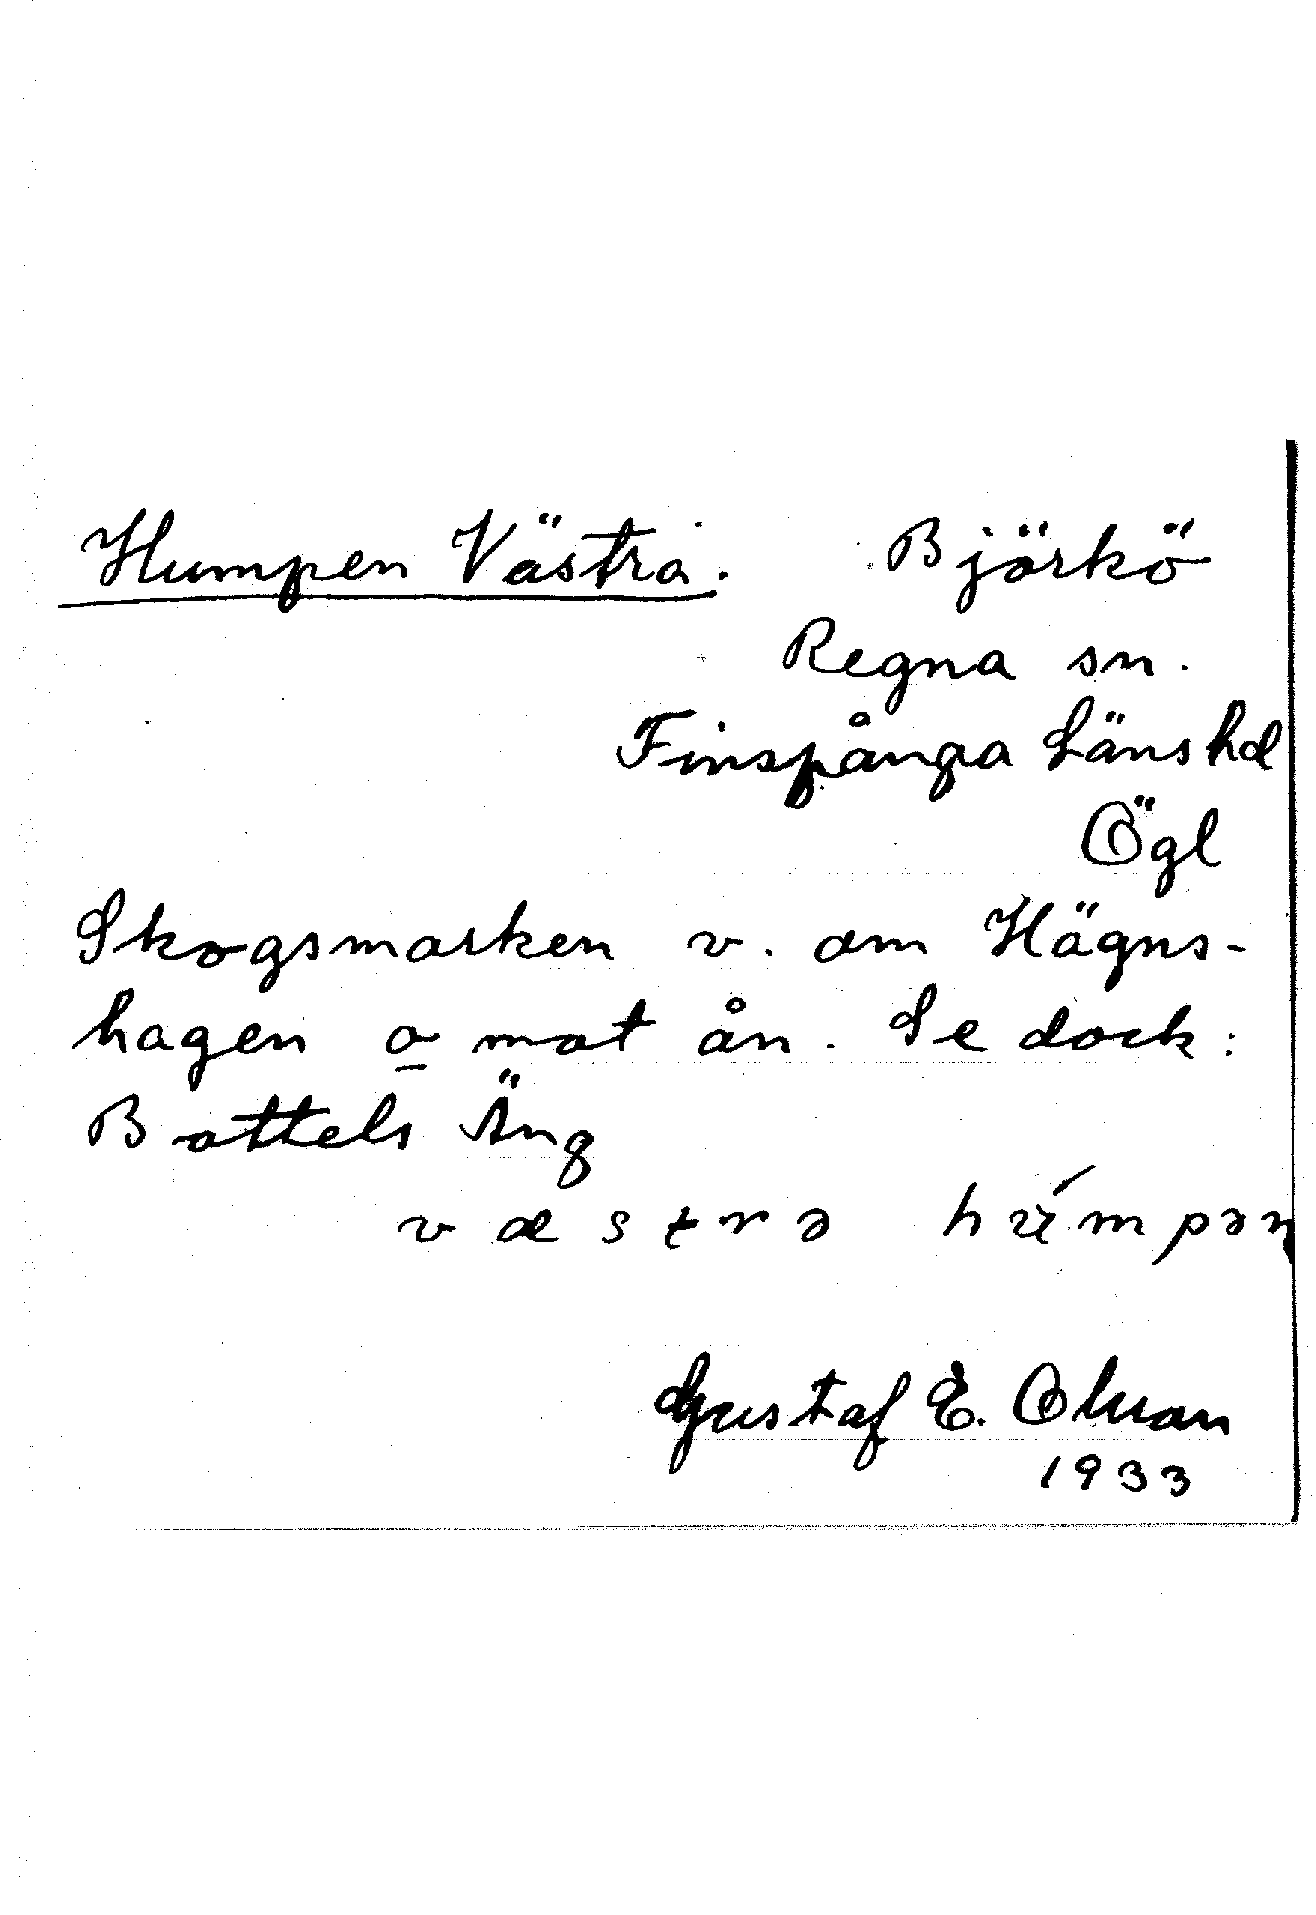 Humpen Västra. Björkö
Regna sn.
Finspånga Länshd
Ögl
Skogsmarken v. om Hägns-
hagen o mot ån. Se dock:
Bottels Äng
væstrə hu̇́mpən
Gustaf E. Olsson
1933